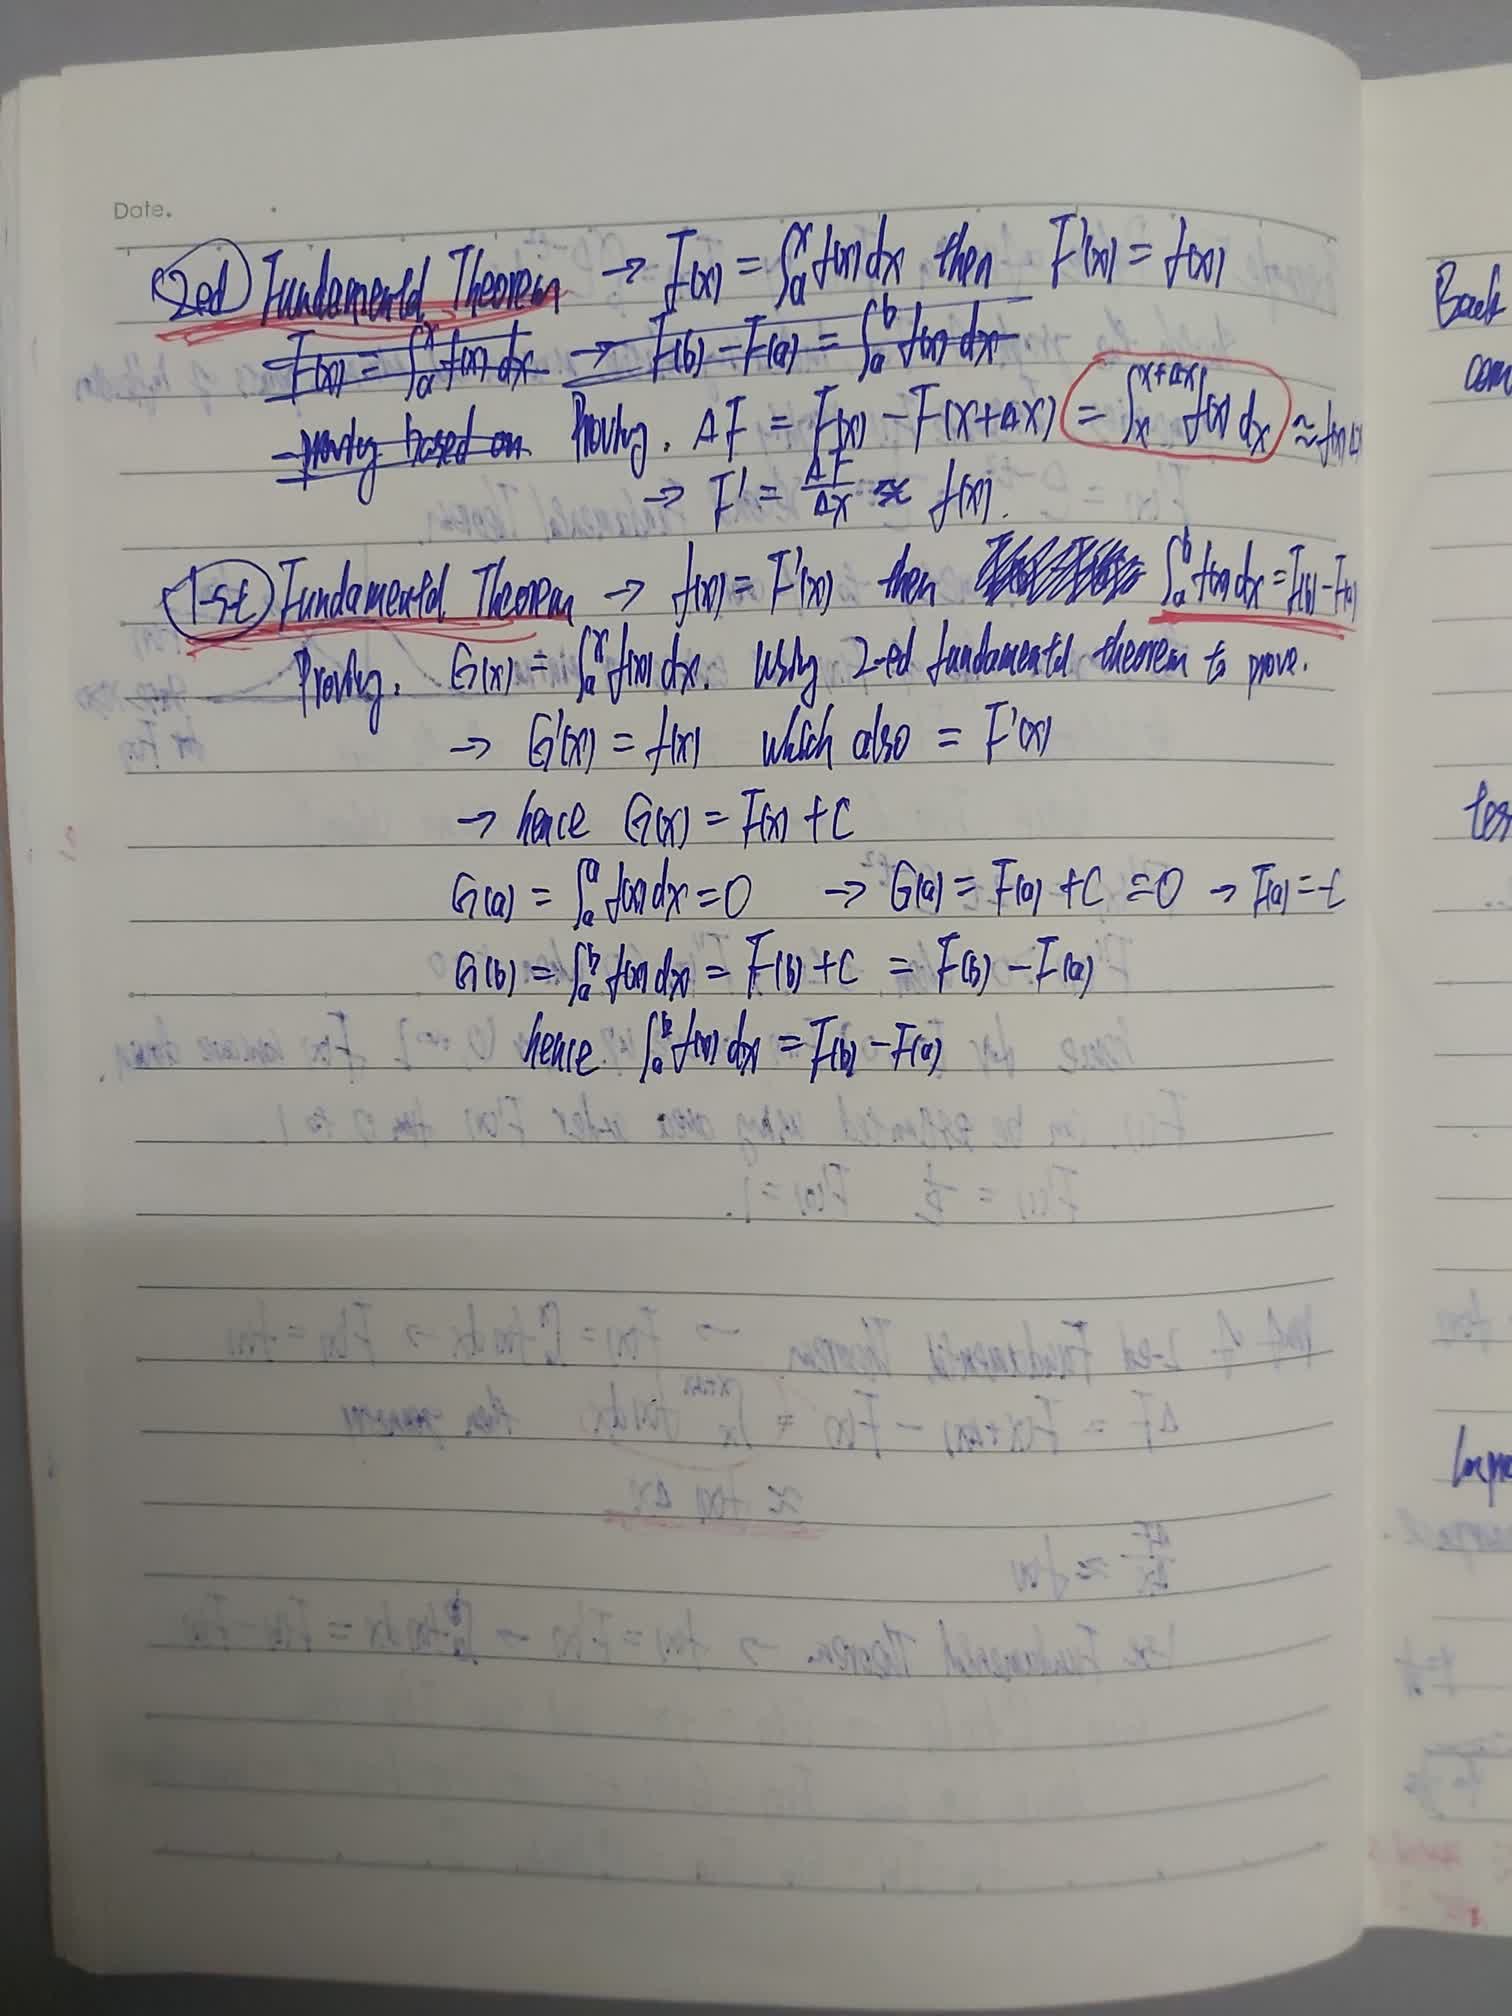 Date.
2-ed Fundamental Theorem → F(x) = ∫ₐˣ f(x) dx then F'(x) = f(x)
F(x) = ∫ₐˣ f(x) dx → F(b) - F(a) = ∫ₐᵇ f(x) dx
- proving based on Proving. ΔF = F(x) - F(x+Δx) = ∫ₓˣ⁺ᐞˣ f(x) dx ≈ f(x) Δx
→ F' = ΔF/Δx ≈ f(x).
1-st Fundamental Theorem → f(x) = F'(x) then ∫ₐᵇ f(x) dx = F(b) - F(a)
Proving. G(x) = ∫ₐˣ f(x) dx. Using 2-ed fundamental theorem to prove.
→ G'(x) = f(x) which also = F'(x)
→ hence G(x) = F(x) + C
G(a) = ∫ₐᵃ f(x) dx = 0 → G(a) = F(a) + C = 0 → F(a) = -C
G(b) = ∫ₐᵇ f(x) dx = F(b) + C = F(b) - F(a)
hence ∫ₐᵇ f(x) dx = F(b) - F(a)
Back
com